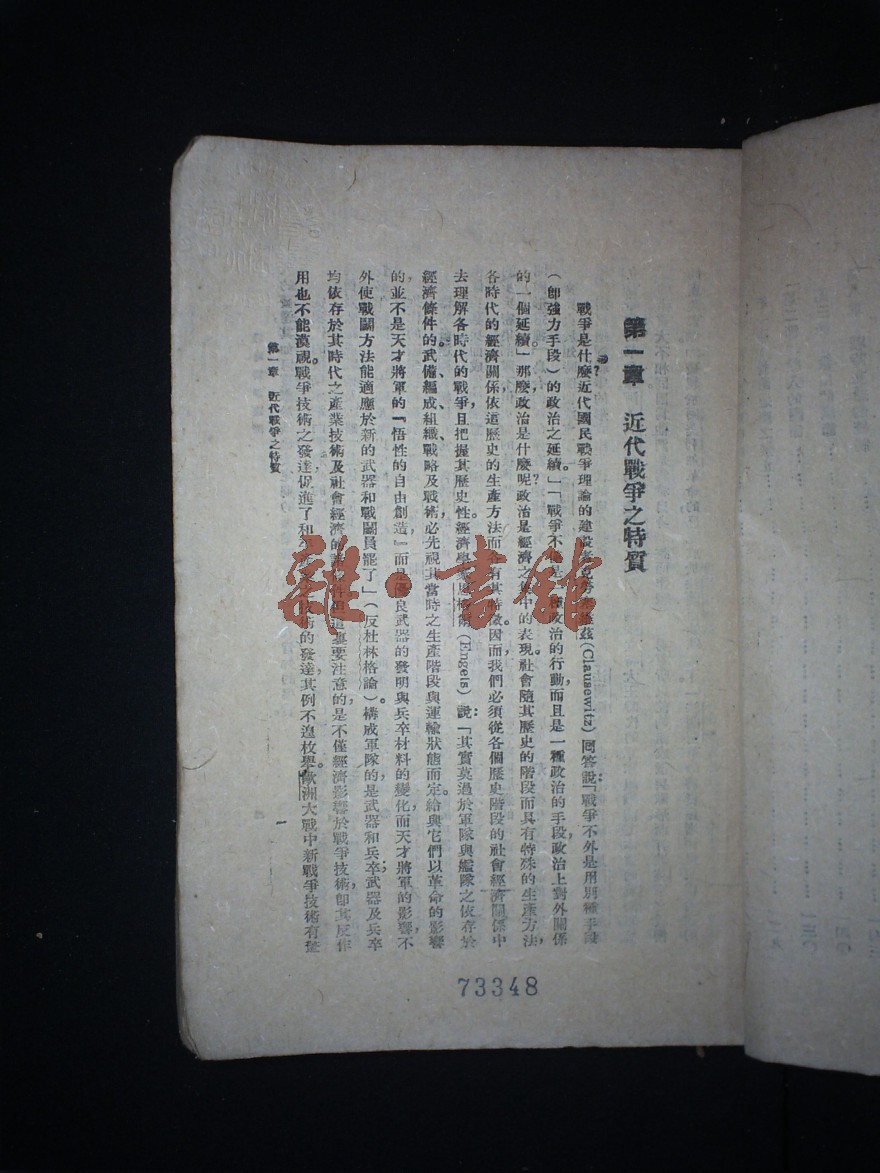 第一章　近代戰爭之特質
戰爭是什麼？近代國民戰爭理論的建設者克勞 茲(Clausewitz)回答說：「戰爭不外是用別種手段
(即強力手段)的政治之延續。」「戰爭不僅是一種政治的行動，而且是一種政治的手段，政治上對外關係
的一個延續」。那麼，政治是什麼呢？政治是經濟之集中的表現。社會隨其歷史的階段而具有特殊的生產方法，
各時代的經濟關係，依這歷史的生產方法而各有其特徵。因而，我們必須從各個歷史階段的社會經濟關係中
去理解各時代的戰爭，且把握其歷史性。經濟學家恩格爾(Engels)說：「其實莫過於軍隊與艦隊之依存於
經濟條件的。武備、編成、組織、戰略及戰術，必先視其當時之生產階段與運輸狀態而定。給與它們以革命的影響
的，並不是天才將軍的『悟性的自由創造』，而是優良武器的發明與兵卒材料的變化，而天才將軍的影響，不
外使戰鬭方法能適應於新的武器和戰鬭員罷了」(反杜林格論)。構成軍隊的是武器和兵卒；武器及兵卒
均依存於其時代之產業技術及社會經濟的 條件。但這裏要注意的，是不僅經濟影響於戰爭技術，即其反作
用也不能漠視。戰爭技術之發達，促進了和平 之技術的發達，其例不遑枚舉。歐洲大戰中新戰爭技術有驚
第一章　近代戰爭之特質
一
73348
雜·書館